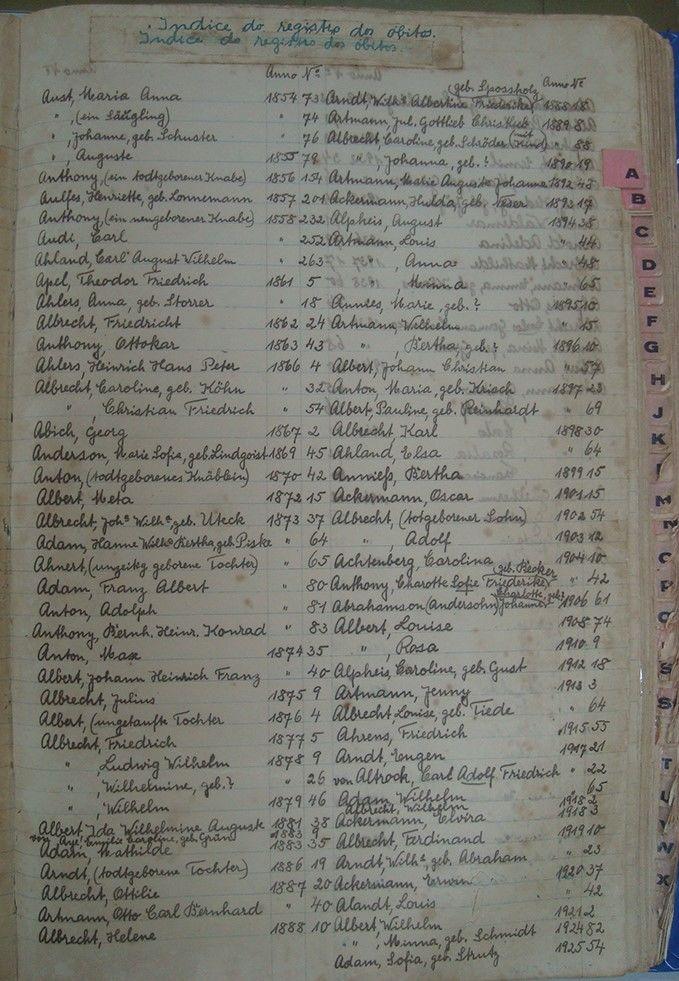 Indice do registro dos óbitos.
Indice do registro dos óbitos.
Anno Nº
Aust, Maria Anna 1854 73
" , (ein Säugling) " 74
" , Johanne, geb. Schuster " 76
" , Auguste 1855 79
Anthony, (ein todtgeborener Knabe) 1856 154
Aulfes, Henriette, geb. Lonnemann 1857 201
Anthony, (ein neugeborener Knabe) 1858 232
Audi, Carl " 252
Ahland, Carl August Wilhelm " 263
Apel, Theodor Friedrich 1861 5
Ahlers, Anna, geb. Storrer " 18
Albrecht, Friedricht 1862 24
Anthony, Ottokar 1863 43
Ahlers, Heinrich Hans Peter 1866 4
Albrecht, Caroline, geb. Köhn " 32
" , Christian Friedrich " 54
Abich, Georg 1867 2
Anderson, Marie Sofia, geb. Lindgoist 1869 45
Anton, (todtgeborenes Knäblein) 1870 42
Albert, Meta 1872 15
Albrecht, Johª Wilhª, geb. Uteck 1873 37
Adam, Hanne Wilhª Bertha, geb. Piske " 64
Ahnert, (unzeitig geborene Tochter) " 65
Adam, Franz Albert " 80
Anton, Adolph " 81
Anthony, Bernh. Heinr. Konrad " 83
Anton, Max 1874 35
Albert, Johann Heinrich Franz " 40
Albrecht, Julius 1875 9
Albert, (ungetaufte Tochter 1876 4
Albrecht, Friedrich 1877 5
" , Ludwig Wilhelm 1878 9
" , Wilhelmine, geb. ? " 26
" , Wilhelm 1879 46
Albert, Ida Wilhelmine Auguste 1881 38
Emilie Caroline, geb. Grünn 1883 9
Adam, Mathilde 1883 35
Arndt, (todtgeborene Tochter) 1886 19
Albrecht, Ottilie 1887 20
Artmann, Otto Carl Bernhard " 40
Albrecht, Helene 1888 10
Anno Nº
(geb. Spossholz
Arndt, Wilhª Albertine Friederike) 1888 18
Artmann, Jul. Gottlieb Christlieb 1889 8
Albrecht, Caroline, geb. Schröder (mit Kind) " 88
" Johanna, geb. ? 1890 19
Artmann, Marie Auguste Johanna 1892 43
Ackermann, Hulda, geb. Veser 1893 17
Alpheis, August 1894 38
Artmann, Louis " 44
" , Anna " 48
" Minna " 65
Annies, Marie, geb. ? 1895 10
Artmann, Wilhelm " 15
" , Bertha, geb. ? 1896 10
Albert, Johann Christian " 57
Anton, Maria, geb. Krisch 1897 23
Albert, Pauline, geb. Reinhardt " 69
Albrecht, Karl 1898 30
Ahland, Elsa " 64
Anniess, Bertha 1899 15
Ackermann, Oscar 1901 15
Albrecht, (totgeborener Sohn) 1902 54
" , Adolf 1903 12
Achtenberg, Carolina 1904 10
Anthony, Charotte Sofie Friederike, geb. Becker " 42
Abrahamson (Andersohn) Johanne Charlotte, geb. 1906 61
Albert, Louise 1908 74
" , Rosa 1910 9
Alpheis, Caroline, geb. Gust 1912 18
Artmann, Jenny 1913 3
Albrecht, Louise, geb. Tiede " 64
Ahrens, Friedrich 1915 55
Arndt, Eugen 1917 21
von Altrock, Carl Adolf Friedrich " 22
Adam, Wilhelm " 65
Albrecht, Wilhelm 1918 2
Ackermann, Elvira 1918 3
Albrecht, Ferdinand 1919 10
Arndt, Wilhª, geb. Abraham " 23
Ackermann, Erwin 1920 37
Alandt, Louis " 42
Albert, Wilhelm 1921 2
" " , Minna, geb. Schmidt 1924 82
Adam, Sofia, geb. Strutz 1925 54
A
B
C
D
E
F
G
H
J
K
L
M
N
O
P
Q
S
S
T
U
V
W
X